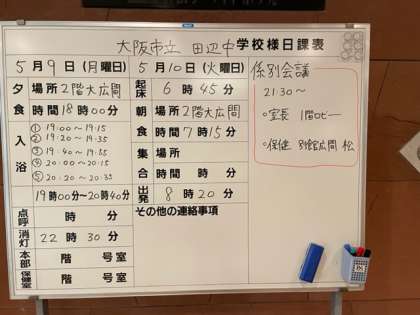 大阪市立 田辺中学校様日課表
5月9日(月曜日)
夕食 場所 2階大広間
時間 18時00分
入浴
① 19:00~19:15
② 19:20~19:35
③ 19:40~19:55
④ 20:00~20:15
⑤ 20:20~20:35
19時00分~20時40分
点呼 時 分
消灯 22時30分
本部 階 号室
保健室 階 号室
5月10日(火曜日)
起床 6時45分
朝食 場所 2階大広間
時間 7時15分
集合 場所
時間 時 分
出発 8時20分
その他の連絡事項
係別会議
21:30~
○室長 1階ロビー
○保健 別館広間 松